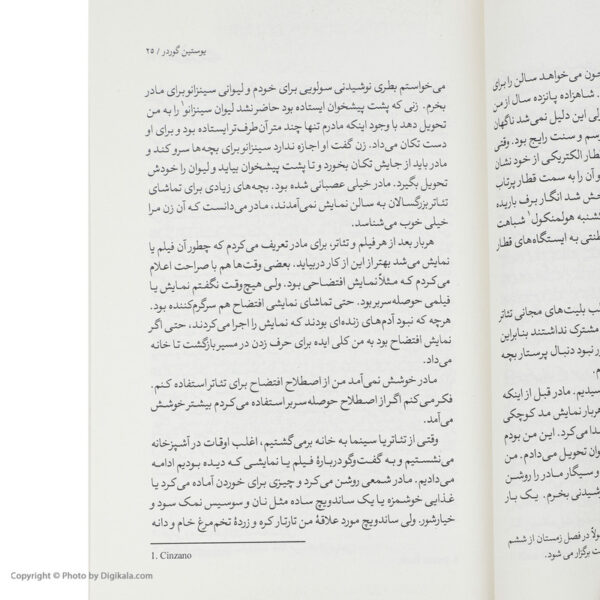 یوستین گوردر / ۲۵
می‌خواستم بطری نوشیدنی سولویی برای خودم و لیوانی سینزانو برای مادر
بخرم. زنی که پشت پیشخوان ایستاده بود حاضر نشد لیوان سینزانو¹ را به من
تحویل دهد با وجود اینکه مادرم تنها چند متر آن‌طرف‌تر ایستاده بود و برای او
دست تکان می‌داد. زن گفت او اجازه ندارد سینزانو برای بچه‌ها سرو کند و
مادر باید از جایش تکان بخورد و تا پشت پیشخوان بیاید و لیوان را خودش
تحویل بگیرد. مادر خیلی عصبانی شده بود. بچه‌های زیادی برای تماشای
تئاتر بزرگسالان به سالن نمایش نمی‌آمدند، مادر می‌دانست که آن زن مرا
خیلی خوب می‌شناسد.
هربار بعد از هر فیلم و تئاتر، برای مادر تعریف می‌کردم که چطور آن فیلم یا
نمایش می‌شد بهتر از این از کار دربیاید. بعضی وقت‌ها هم با صراحت اعلام
می‌کردم که مثلاً نمایش افتضاحی بود. ولی هیچ‌وقت نگفتم نمایش یا
فیلمی حوصله‌سربر بود. حتی تماشای نمایشی افتضاح هم سرگرم‌کننده بود.
هرچه که نبود آدم‌های زنده‌ای بودند که نمایش را اجرا می‌کردند، حتی اگر
نمایش افتضاح بود به من کلی ایده برای حرف زدن در مسیر بازگشت تا خانه
می‌داد.
مادر خوشش نمی‌آمد من از اصطلاح افتضاح برای تئاتر استفاده کنم.
فکر می‌کنم اگر از اصطلاح حوصله‌سربر استفاده می‌کردم بیشتر خوشش
می‌آمد.
وقتی از تئاتر یا سینما به خانه برمی‌گشتیم، اغلب اوقات در آشپزخانه
می‌نشستیم و به گفت‌وگو دربارهٔ فیلم یا نمایشی که دیده بودیم ادامه
می‌دادیم. مادر شمعی روشن می‌کرد و چیزی برای خوردن آماده می‌کرد یا
غذایی خوشمزه یا یک ساندویچ ساده مثل نان و سوسیس نمک سود و
خیارشور. ولی ساندویچ مورد علاقهٔ من تارتار کره و زردهٔ تخم‌مرغ خام و دانه
1. Cinzano
چون می‌خواهد سالن را برای
شاهزاده پانزده سال از من
لی این دلیل نمی‌شد ناگهان
رسم و سنت رایج بود. وقتی
قطار الکتریکی از خود نشان
و آن را به سمت قطار پرتاب
خش شد انگار برف باریده
کشنبه هولمنکول¹ شباهت
طنتی به ایستگاه‌های قطار
لب بلیت‌های مجانی تئاتر
مشترک نداشتند بنابراین
ر نبود دنبال پرستار بچه
م.
سیدیم. مادر قبل از اینکه
هربار نمایش مد کوچکی
دا می‌کرد. این من بودم
وان تحویل می‌دادم. من
و سیگار مادر را روشن
شیدنی بخرم. یک بار
ولاً در فصل زمستان از ششم
ت برگزار می شود.
Copyright © Photo by Digikala.com